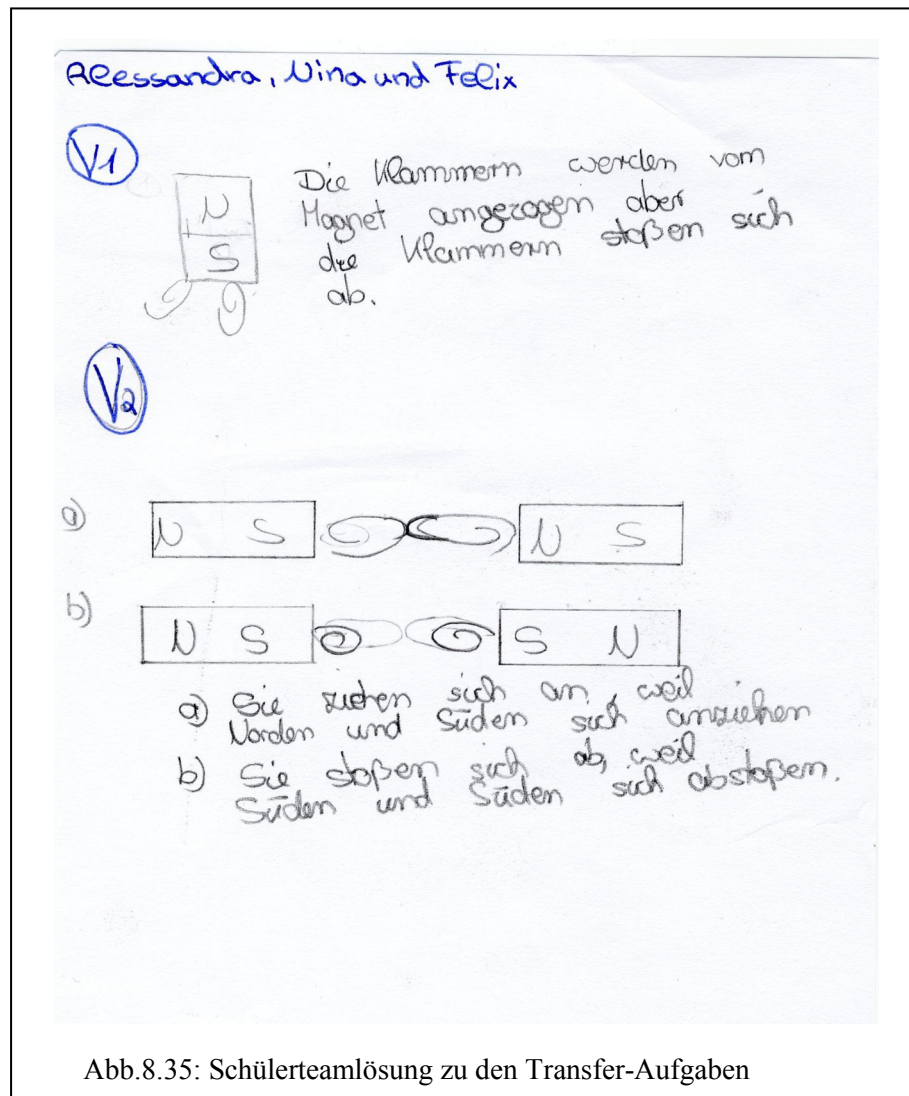 Alessandra, Nina und Felix
V1
N
S
Die Klammern werden vom
Magnet angezogen aber
die Klammern stoßen sich
ab.
V2
a) N S N S
b) N S S N
a) Sie ziehen sich an, weil
Norden und Süden sich anziehen
b) Sie stoßen sich ab, weil
Süden und Süden sich abstoßen.
Abb.8.35: Schülerteamlösung zu den Transfer-Aufgaben